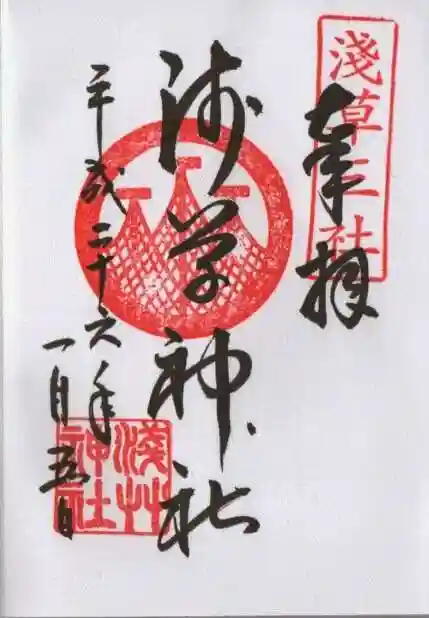 淺草三社
奉拝
浅草神社
平成二十六年
一月五日
淺草神社